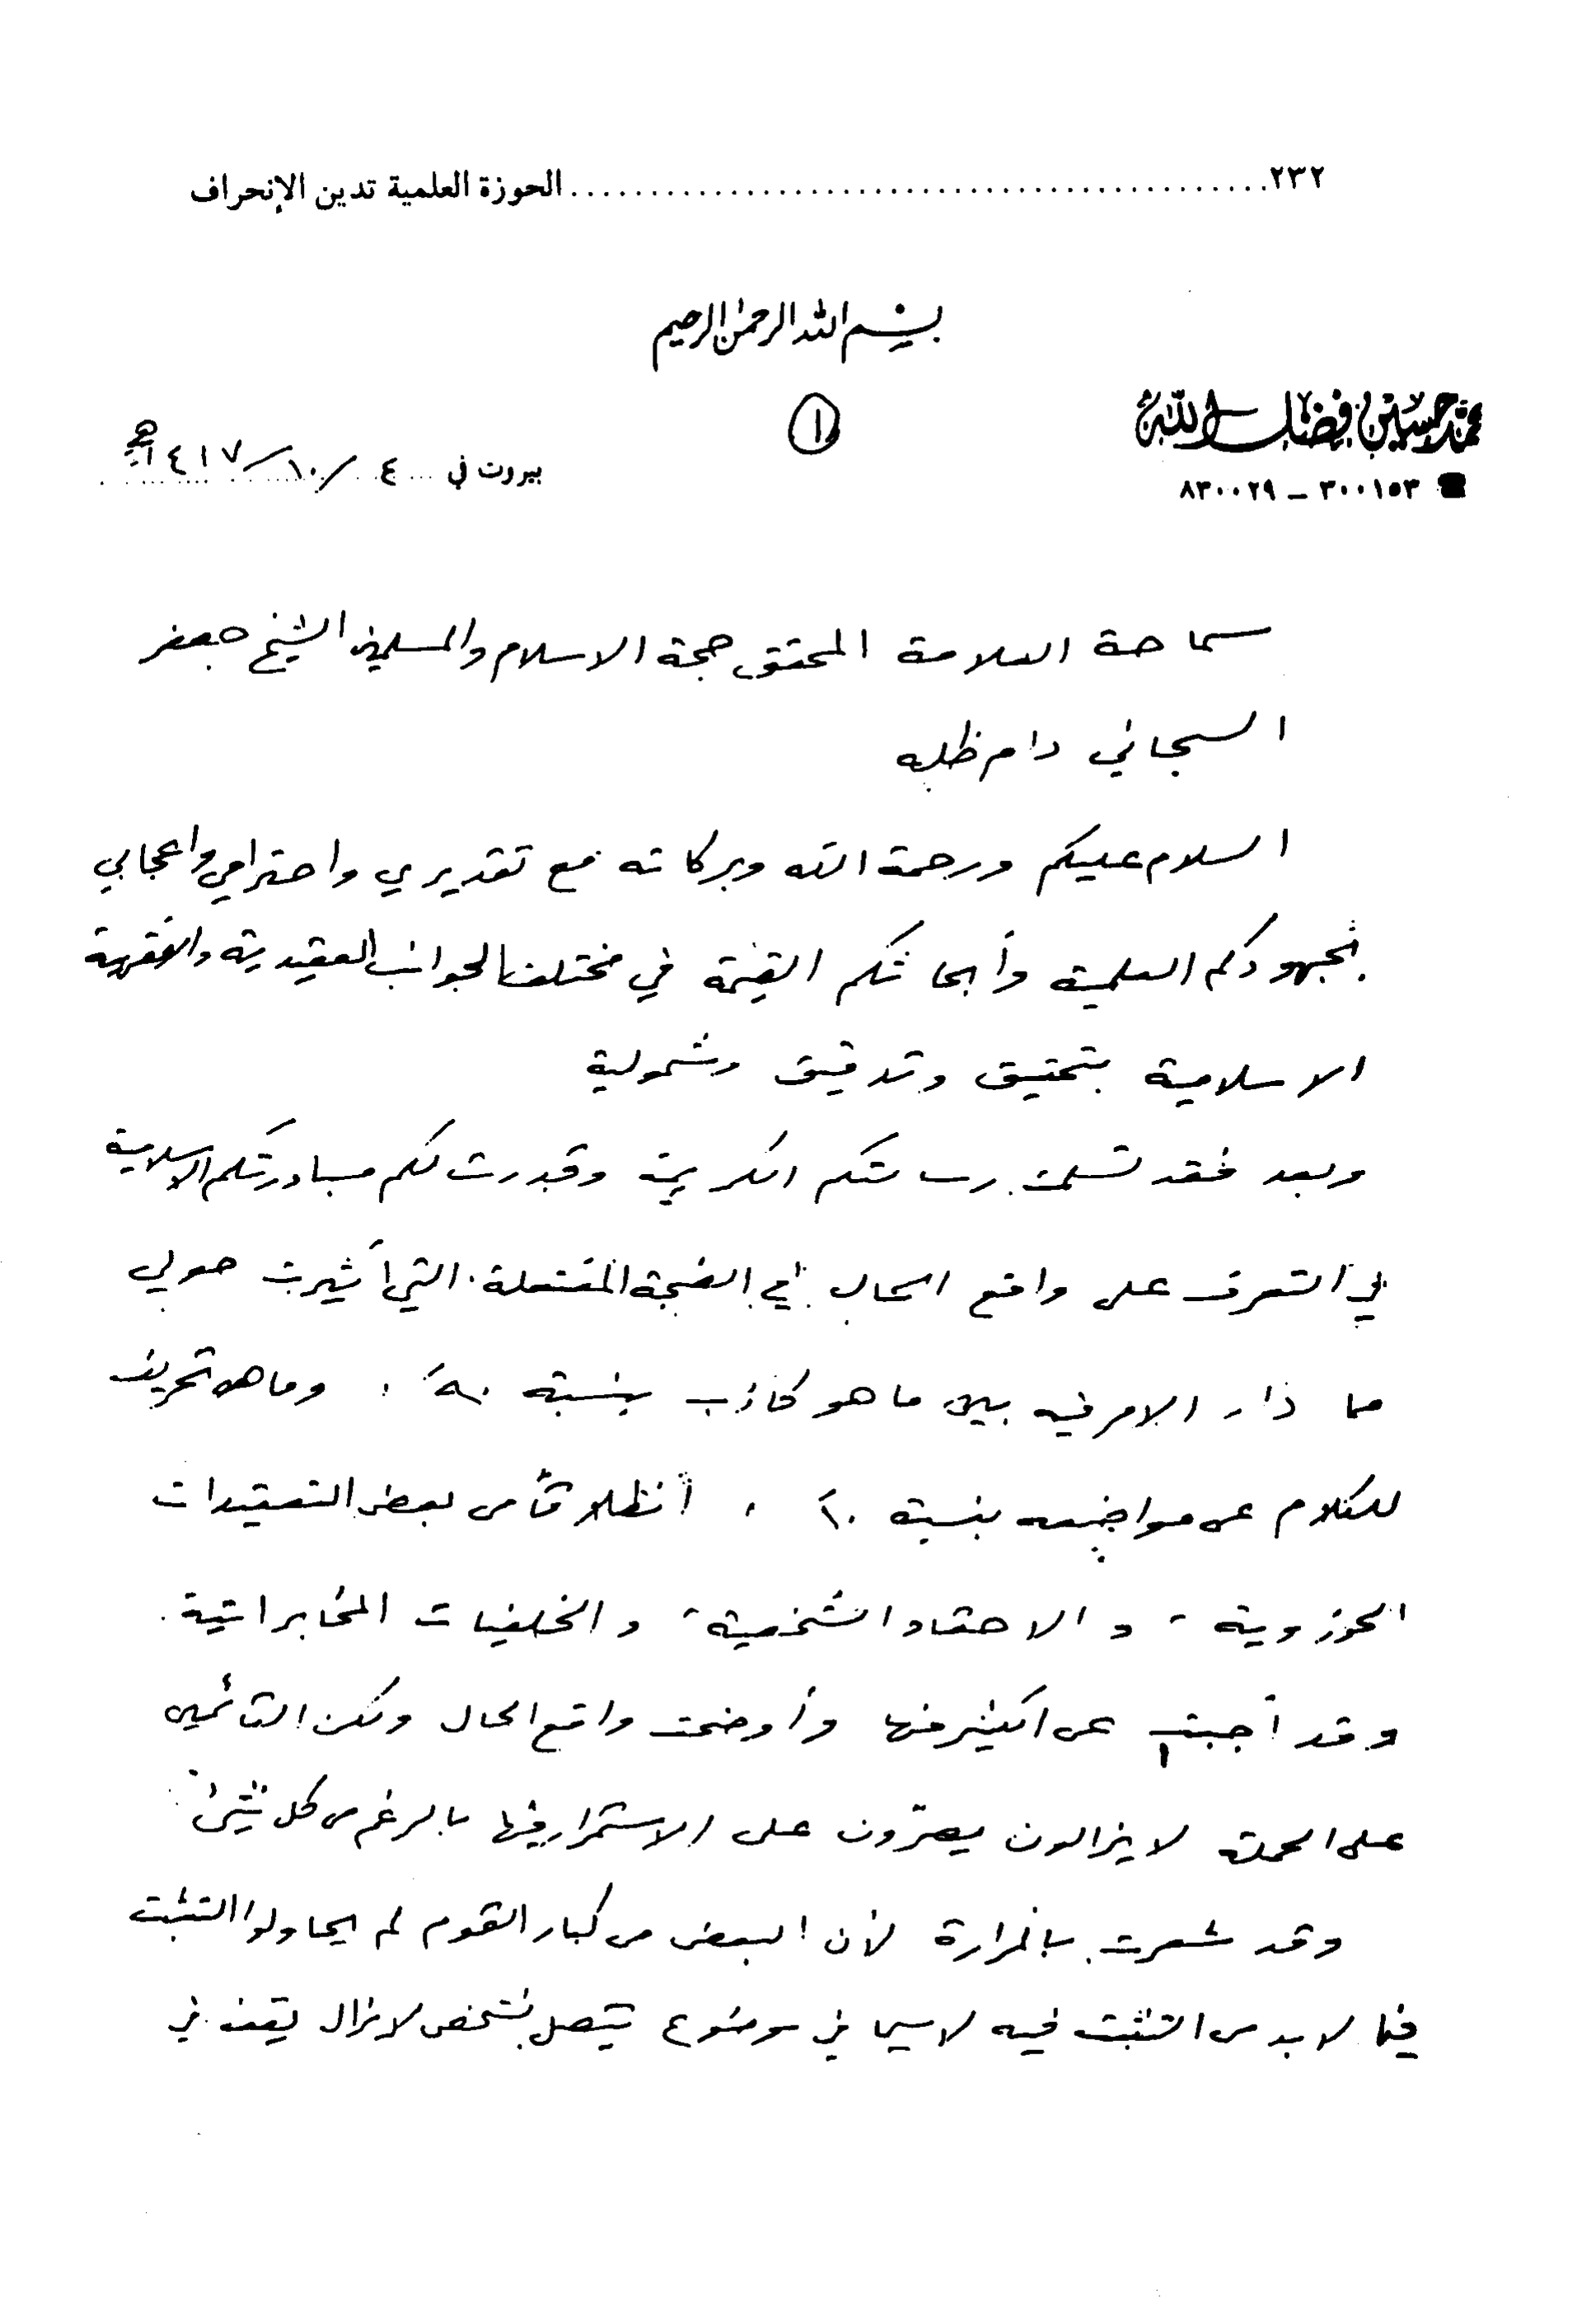 ٢٣٢ ........ الحوزة العلمية تدين الإنحراف
بسم الله الرحمن الرحيم
محمد حسين فضل الله
١
بيروت في ٤ / ١٠ / ١٤١٧هـ
٣٠٠١٥٣ - ٨٣٠٠٢٩
سماحة العلامة المحقق حجة الاسلام والمسلمين الشيخ جعفر
السبحاني دام ظله
السلام عليكم ورحمة الله وبركاته مع تقديري واحترامي واعجابي
بجهودكم العلمية وأبحاثكم القيّمة في مختلف الجوانب العقيدية والفقهية
الاسلامية بتحقيق وتدقيق وشمولية
وبعد فقد تسلمت رسالتكم الكريمة وقدرت لكم مبادرتكم الاسلامية
في التعرف على واقع الحال في الضجة المفتعلة التي أثيرت حولي
مما دار الامر فيه بين ما هو كاذب بنسبة ٩٠٪ ، وما هو تحريف
للكلام عن مواضعه بنسبة ١٠٪ ، انطلاقاً من بعض التعقيدات
الحوزوية ، والاحقاد الشخصية ، والخلفيات المخابراتية .
وقد أجبت عن أكثر منها وأوضحت واقع الحال ولكن القائمين
على الحملة لا يزالون يصرّون على الاستمرار فيها بالرغم من كل شيء
وقد شعرت بالمرارة لأن البعض من كبار القوم لم يحاولوا التثبت
فيما لا بد من التثبت فيه لا سيما في موضوع يتصل بشخص لا يزال يقف في